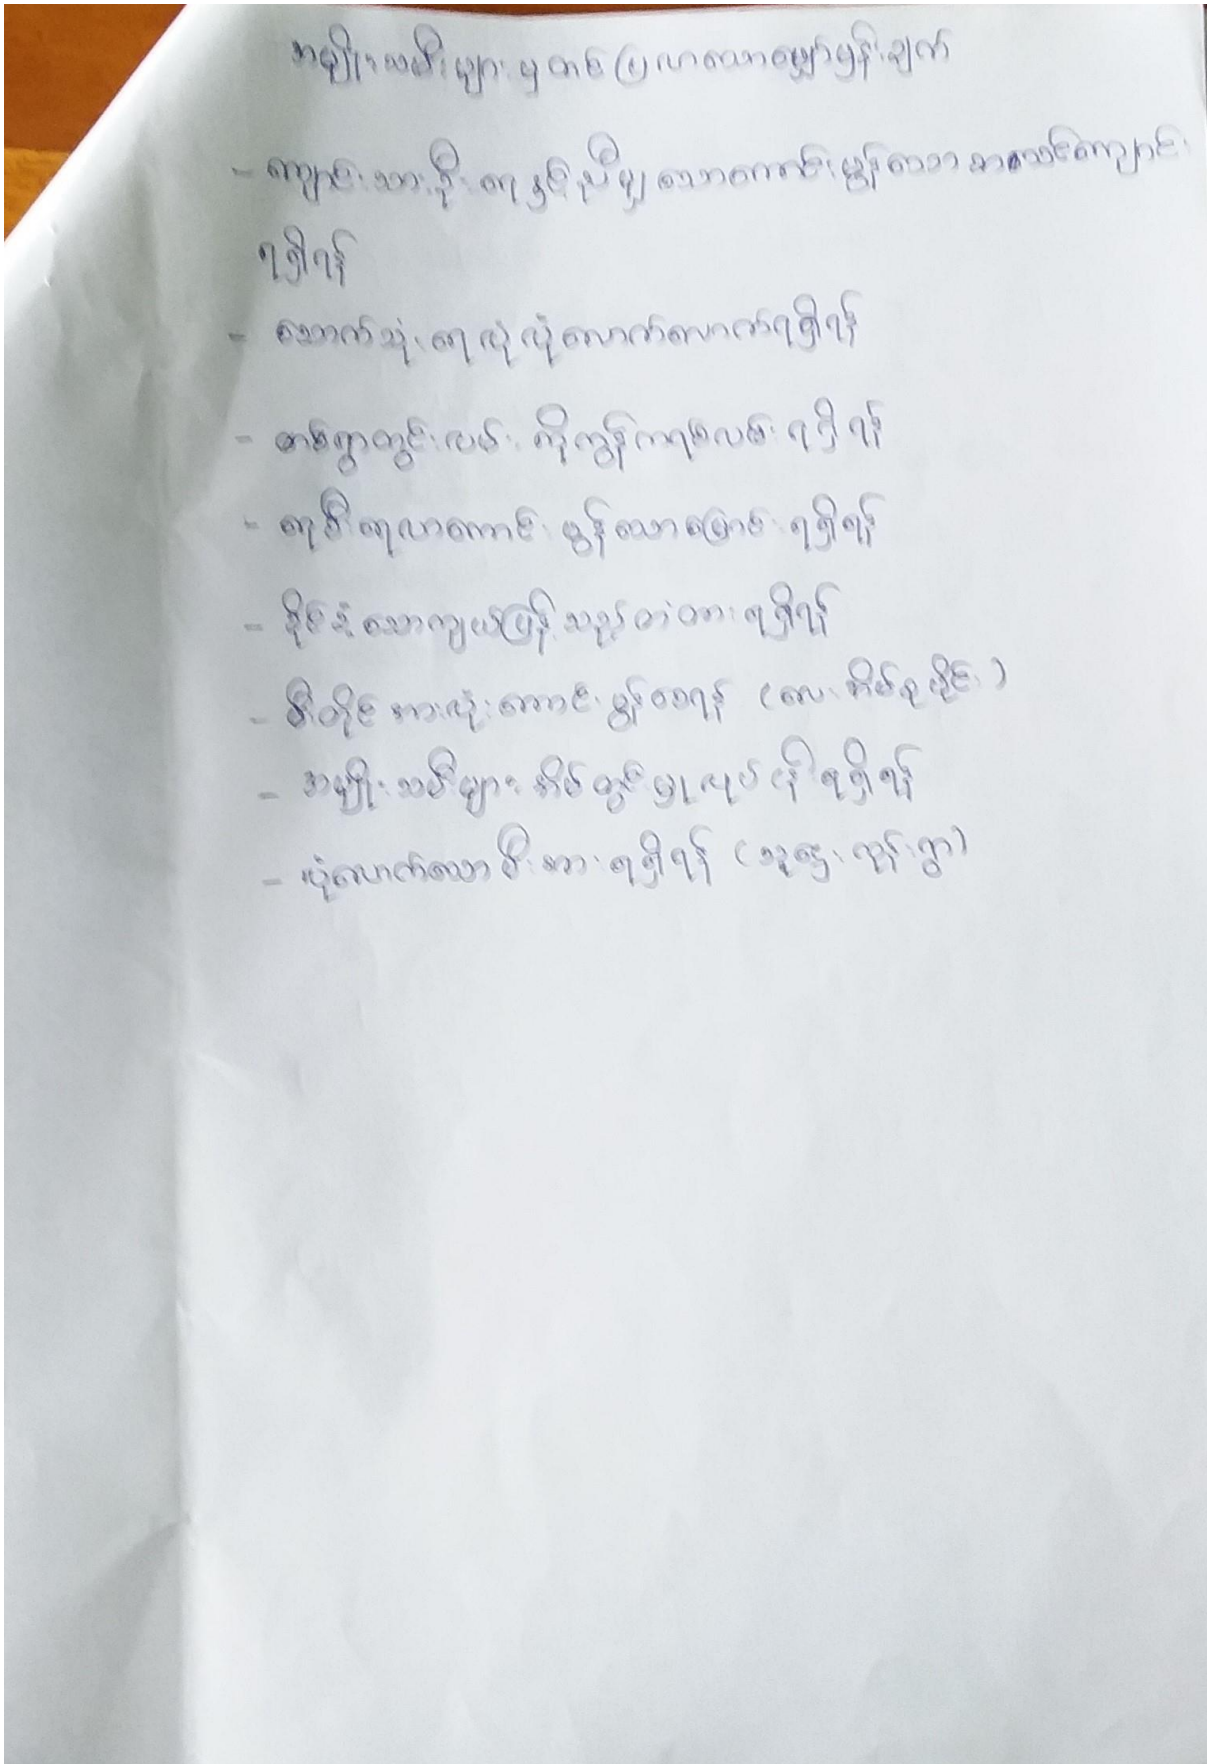 အမျိုးသမီးများမှ တင်ပြလာသောမျှော်မှန်းချက်
- ကျောင်းသားဦးရေနှင့်ညီမျှသောကောင်းမွန်သော စာသင်ကျောင်း
ရရှိရန်
- သောက်သုံးရေလုံလုံလောက်လောက်ရရှိရန်
- တစ်ရွာတွင်းလမ်း ကိုကွန်ကရစ်လမ်း ရရှိရန်
- ရေစီးရေလာကောင်းမွန်သောမြောင်း ရရှိရန်
- ခိုင်ခံ့သောကျယ်ပြန့်သည့်တံတား ရရှိရန်
- မီးတိုင်အားလုံးကောင်းမွန်စေရန် (လေးအိမ်စုပိုင်း)
- အမျိုးသမီးများ အိမ်တွင်းမှုလုပ်ငန်း ရရှိရန်
- လုံလောက်သော မီးအားရရှိရန် (သူဌေးကုန်းရွာ)